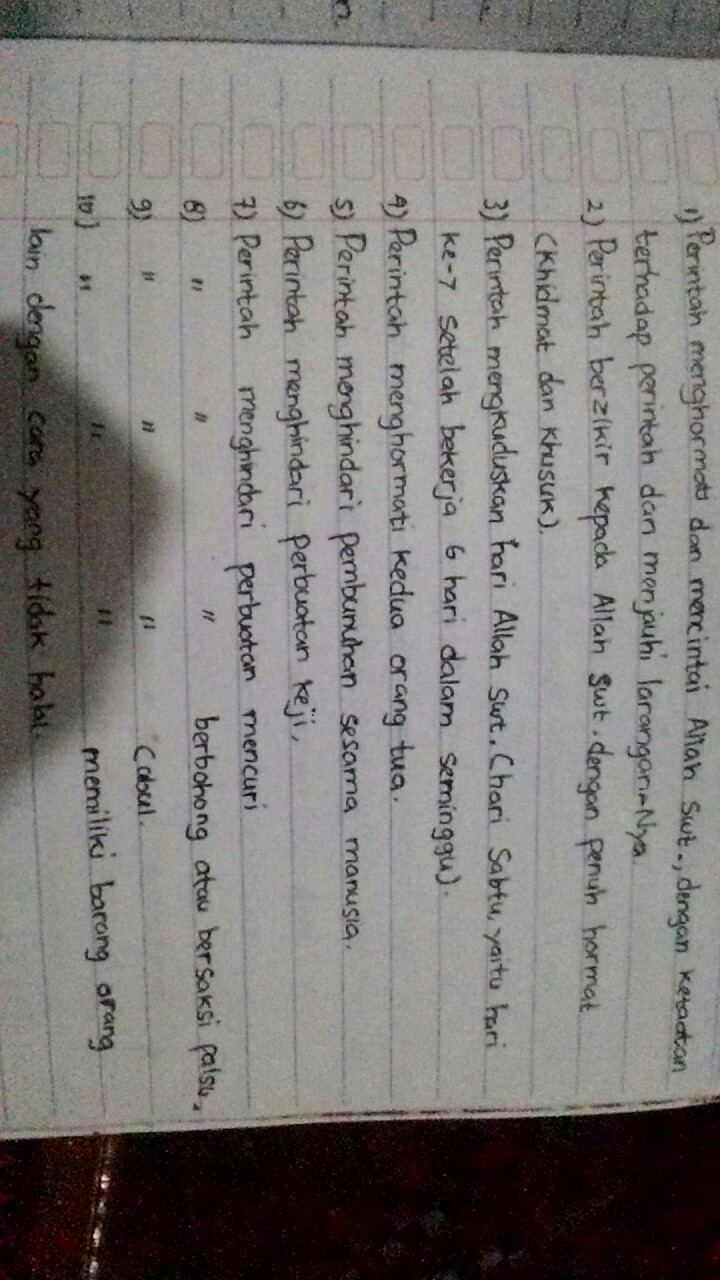 1) Perintah menghormati dan mencintai Allah swt., dengan ketaatan
terhadap perintah dan menjauhi larangan-Nya.
2) Perintah berzikir kepada Allah swt. dengan penuh hormat
(Khidmat dan Khusuk).
3) Perintah mengkuduskan hari Allah swt. (hari Sabtu, yaitu hari
ke-7 setelah bekerja 6 hari dalam seminggu).
4) Perintah menghormati kedua orang tua.
5) Perintah menghindari pembunuhan sesama manusia.
6) Perintah menghindari perbuatan keji,
7) Perintah menghindari perbuatan mencuri
8) " " " berbohong atau bersaksi palsu,
9) " " " Cabul.
10) " " " memiliki barang orang
lain dengan cara yang tidak halal.